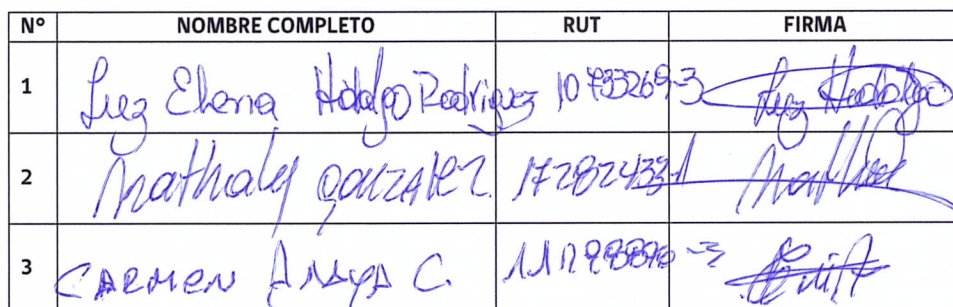 N° NOMBRE COMPLETO RUT FIRMA
1 Luz Elena Hidalgo Rodriguez 10733269-3 Luz Hidalgo
2 Nathaly Gonzalez 17282433-1
3 CARMEN ANAYA C.